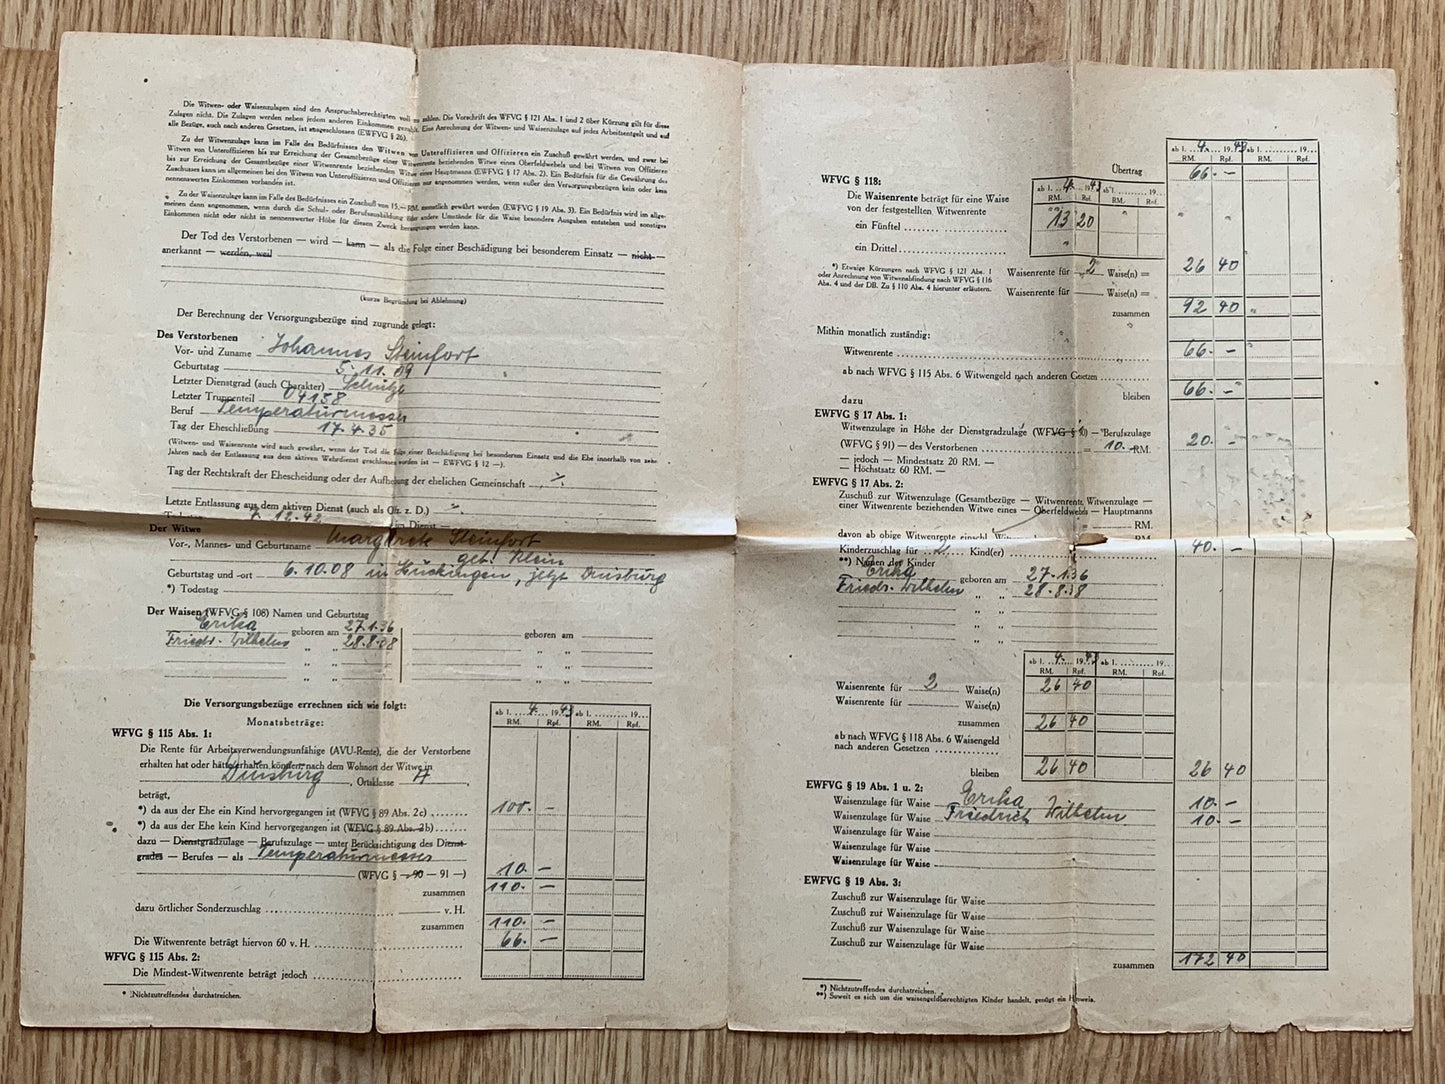 Die Witwen- oder Waisenzulagen sind den Anspruchsberechtigten voll zu zahlen. Die Vorschrift des WFVG § 121 Abs. 1 und 2 über Kürzung gilt für diese
Zulagen nicht. Die Zulagen werden neben jedem anderen Einkommen gezahlt. Eine Anrechnung der Witwen- und Waisenzulage auf jedes Arbeitsentgelt und auf
alle Bezüge, auch nach anderen Gesetzen, ist ausgeschlossen (EWFVG § 26).
Zu der Witwenzulage kann im Falle des Bedürfnisses den Witwen von Unteroffizieren und Offizieren ein Zuschuß gewährt werden, und zwar bei
Witwen von Unteroffizieren bis zur Erreichung der Gesamtbezüge einer Witwenrente beziehenden Witwe eines Oberfeldwebels und bei Witwen von Offizieren
bis zur Erreichung der Gesamtbezüge einer Witwenrente beziehenden Witwe eines Hauptmanns (EWFVG § 17 Abs. 2). Ein Bedürfnis für die Gewährung des
Zuschusses kann im allgemeinen bei den Witwen von Unteroffizieren und Offizieren nur angenommen werden, wenn außer den Versorgungsbezügen kein oder kein
nennenswertes Einkommen vorhanden ist.
Zu der Waisenzulage kann im Falle des Bedürfnisses ein Zuschuß von 15,— RM. monatlich gewährt werden (EWFVG § 19 Abs. 3). Ein Bedürfnis wird im allge-
meinen dann angenommen, wenn durch die Schul- oder Berufsausbildung oder andere Umstände für die Waise besondere Ausgaben entstehen und sonstiges
Einkommen nicht oder nicht in nennenswerter Höhe für diesen Zweck herangezogen werden kann.
Der Tod des Verstorbenen — wird — kann — als die Folge einer Beschädigung bei besonderem Einsatz — nicht —
anerkannt — werden, weil
(kurze Begründung bei Ablehnung)
Der Berechnung der Versorgungsbezüge sind zugrunde gelegt:
Des Verstorbenen
Vor- und Zuname Johannes Steinfort
Geburtstag 5.11.09
Letzter Dienstgrad (auch Charakter) Schütze
Letzter Truppenteil 04138
Beruf Temperaturmesser
Tag der Eheschließung 17.4.35
(Witwen- und Waisenrente wird auch gewährt, wenn der Tod die Folge einer Beschädigung bei besonderem Einsatz und die Ehe innerhalb von zehn
Jahren nach der Entlassung aus dem aktiven Wehrdienst geschlossen worden ist — EWFVG § 12 —).
Tag der Rechtskraft der Ehescheidung oder der Aufhebung der ehelichen Gemeinschaft ./.
Letzte Entlassung aus dem aktiven Dienst (auch als Ofz. z. D.)
12.42 im Dienst
Der Witwe
Vor-, Mannes- und Geburtsname Margarete Steinfort
geb. Klein
Geburtstag und -ort 6.10.08 in Hückingen, jetzt Duisburg
*) Todestag
Der Waisen (WFVG § 108) Namen und Geburtstag
Erika geboren am 27.1.36 geboren am
Friedr. Wilhelm " " 28.8.08 " "
" " " "
" " " "
Die Versorgungsbezüge errechnen sich wie folgt:
Monatsbeträge:
ab 1. 4. 1943 ab 1. 19
RM. Rpf. RM. Rpf.
WFVG § 115 Abs. 1:
Die Rente für Arbeitsverwendungsunfähige (AVU-Rente), die der Verstorbene
erhalten hat oder hätte erhalten können, nach dem Wohnort der Witwe in
Duisburg, Ortsklasse A
beträgt,
*) da aus der Ehe ein Kind hervorgegangen ist (WFVG § 89 Abs. 2c) 100.—
*) da aus der Ehe kein Kind hervorgegangen ist (WFVG § 89 Abs. 2b)
dazu — Dienstgradzulage — Berufszulage — unter Berücksichtigung des Dienst-
grades — Berufes — als Temperaturmesser
(WFVG § — 90 — 91 —) 10.—
zusammen 110.—
dazu örtlicher Sonderzuschlag v. H.
zusammen 110.—
Die Witwenrente beträgt hiervon 60 v. H. 66.—
WFVG § 115 Abs. 2:
Die Mindest-Witwenrente beträgt jedoch
* Nichtzutreffendes durchstreichen.
ab 1. 4. 1943 ab 1. 19
RM. Rpf. RM. Rpf.
Übertrag 66.—
WFVG § 118:
ab 1. 4. 43 ab 1. 19
RM. Rpf. RM. Rpf.
Die Waisenrente beträgt für eine Waise
von der festgestellten Witwenrente
ein Fünftel 13 20
ein Drittel
*) Etwaige Kürzungen nach WFVG § 121 Abs. 1
oder Anrechnung von Witwenabfindung nach WFVG § 116
Abs. 4 und der DB. Zu § 110 Abs. 4 hierunter erläutern.
Waisenrente für 2 Waise(n) = 26 40
Waisenrente für Waise(n) =
zusammen 92 40
Mithin monatlich zuständig:
Witwenrente 66.—
ab nach WFVG § 115 Abs. 6 Witwengeld nach anderen Gesetzen
bleiben 66.—
dazu
EWFVG § 17 Abs. 1:
Witwenzulage in Höhe der Dienstgradzulage (WFVG § 90) — Berufszulage
(WFVG § 91) — des Verstorbenen 10.— RM. 20.—
— jedoch — Mindestsatz 20 RM. —
— Höchstsatz 60 RM. —
EWFVG § 17 Abs. 2:
Zuschuß zur Witwenzulage (Gesamtbezüge — Witwenrente, Witwenzulage —
einer Witwenrente beziehenden Witwe eines — Oberfeldwebels — Hauptmanns
RM.
davon ab obige Witwenrente einschl. RM.
Kinderzuschlag für 2 Kind(er) 40.—
**) Namen der Kinder
Erika geboren am 27.1.36
Friedr. Wilhelm " " 28.8.38
" "
" "
ab 1. 4. 1943 ab 1. 19
RM. Rpf. RM. Rpf.
Waisenrente für 2 Waise(n) 26 40
Waisenrente für Waise(n)
zusammen 26 40
ab nach WFVG § 118 Abs. 6 Waisengeld
nach anderen Gesetzen
bleiben 26 40 26 40
EWFVG § 19 Abs. 1 u. 2:
Waisenzulage für Waise Erika 10.—
Waisenzulage für Waise Friedrich Wilhelm 10.—
Waisenzulage für Waise
Waisenzulage für Waise
Waisenzulage für Waise
EWFVG § 19 Abs. 3:
Zuschuß zur Waisenzulage für Waise
Zuschuß zur Waisenzulage für Waise
Zuschuß zur Waisenzulage für Waise
Zuschuß zur Waisenzulage für Waise
zusammen 172 40
*) Nichtzutreffendes durchstreichen.
**) Soweit es sich um die waisengeldberechtigten Kinder handelt, genügt ein Hinweis.